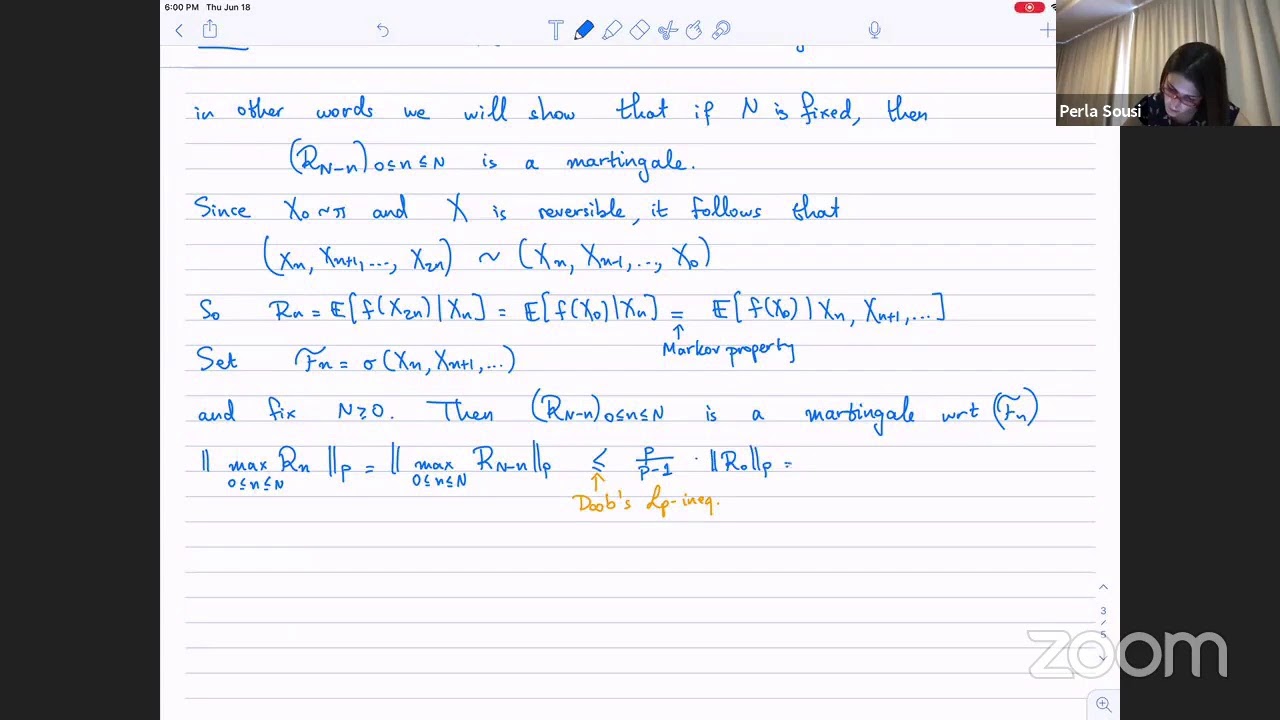 6:00 PM Thu Jun 18
Perla Sousi
in other words we will show that if N is fixed, then
(R_{N-n})_{0≤n≤N} is a martingale.
Since X_0 ~ π and X is reversible, it follows that
(X_n, X_{n+1}, ..., X_{2n}) ~ (X_n, X_{n-1}, .., X_0)
So R_n = 𝔼[f(X_{2n}) | X_n] = 𝔼[f(X_0) | X_n] = 𝔼[f(X_0) | X_n, X_{n+1}, ...]
↑
Markov property
Set F̃_n = σ(X_n, X_{n+1}, ...)
and fix N≥0. Then (R_{N-n})_{0≤n≤N} is a martingale wrt (F̃_n)
‖ max_{0≤n≤N} R_n ‖_p = ‖ max_{0≤n≤N} R_{N-n} ‖_p ≤ p/(p-1) · ‖R_0‖_p =
↑
Doob's Lp-ineq.
3
/
5
zoom